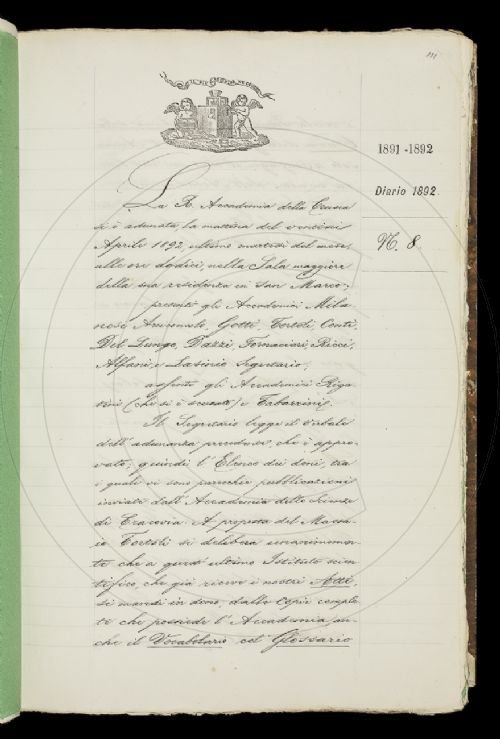 1891-1892
Diario 1892.
N. 8.
La R. Accademia della Crusca
si è adunata, la mattina del
Aprile 1892, ultimo martedì del mese,
alle ore dodici, nella Sala maggiore
della sua residenza in San Marco;
presenti gli Accademici Mila-
nesi Arciconsolo, Gotti, Tortoli, Conti,
Del Lungo, Dazzi, Fornaciari, Ricci,
Alfani, e Lasinio Segretario;
assenti gli Accademici Riga-
tini (che si è scusato) e Tabarrini.
Il Segretario legge il verbale
dell'adunanza precedente, che è appro-
vato; quindi l'Elenco dei doni, tra
i quali vi sono parecchie pubblicazioni
inviate dall'Accademia delle Scienze
di Cracovia. A proposta del Massa-
io Tortoli si delibera unanimemen-
te che a quest'ultimo Istituto scien-
tifico, che già riceve i nostri Atti,
si mandi in dono, dalle copie comple-
te che possiede l'Accademia, an-
che il Vocabolario col Glossario